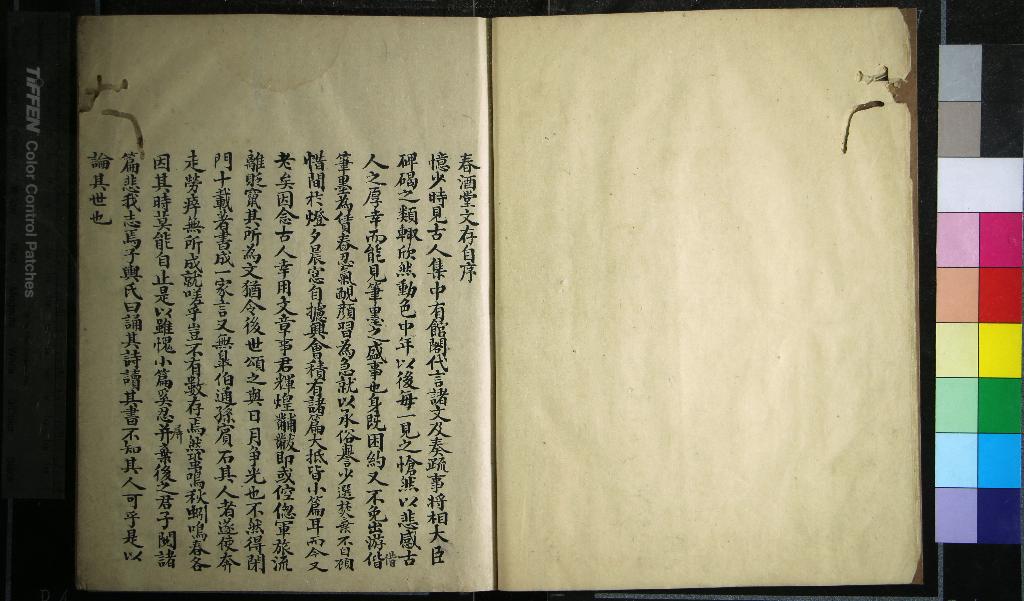 春酒堂文存自序
憶少時見古人集中有館閣代言諸文及奏疏事將相大臣
碑碣之類輒欣然動色中年以後每一見之愴然以悲感古
人之厚幸而能見筆墨之盛事也身既困約又不免出游偕
借
筆墨為賃舂忍氣靦顏習為急就以永俗譽少選焚棄不自顧
惜間於燈夕晨窓自攄興會積有諸篇大抵皆小篇耳而今又
老矣因念古人幸用文章事君輝煌黼黻即或倥偬軍旅流
離貶竄其所為文猶令後世頌之與日月爭光也不然得閉
門十載著書成一家言又無皐伯通孫賓石其人者遂使奔
走勞瘁無所成就嗟乎豈不有數存焉然蛩鳴秋蜩鳴春各
因其時莫能自止是以雖愧小篇奚忍并棄後之君子閱諸
屏
篇悲我志焉子輿氏曰誦其詩讀其書不知其人可乎是以
論其世也
TIFFEN Color Control Patches